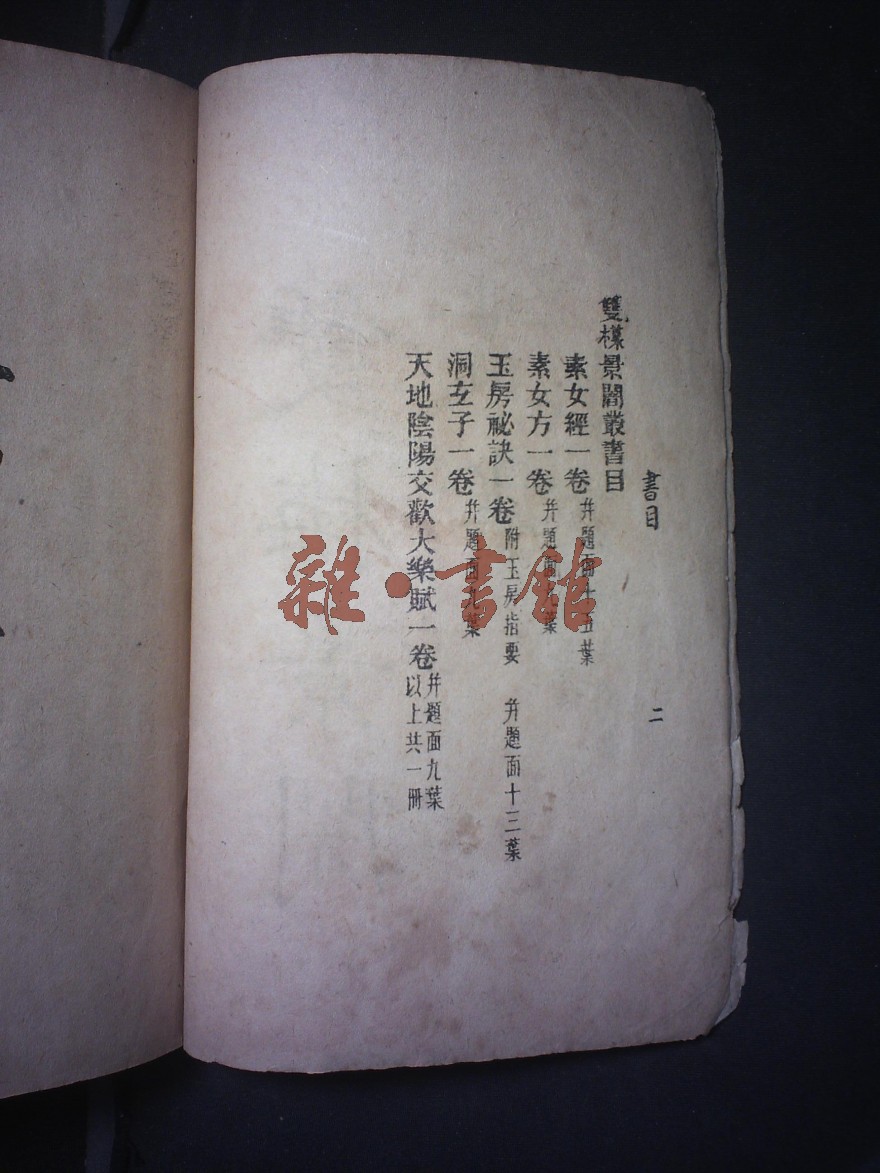 書目
二
雙楳景闇叢書目
素女經一卷 幷題面十五葉
素女方一卷 幷題面九葉
玉房祕訣一卷 附玉房指要 幷題面十三葉
洞玄子一卷 幷題面九葉
天地陰陽交歡大樂賦一卷 幷題面九葉
以上共一冊
雜·書館